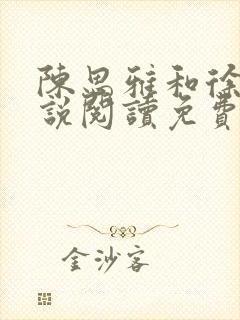 陳思雅和徐
說閱讀免費
金沙客